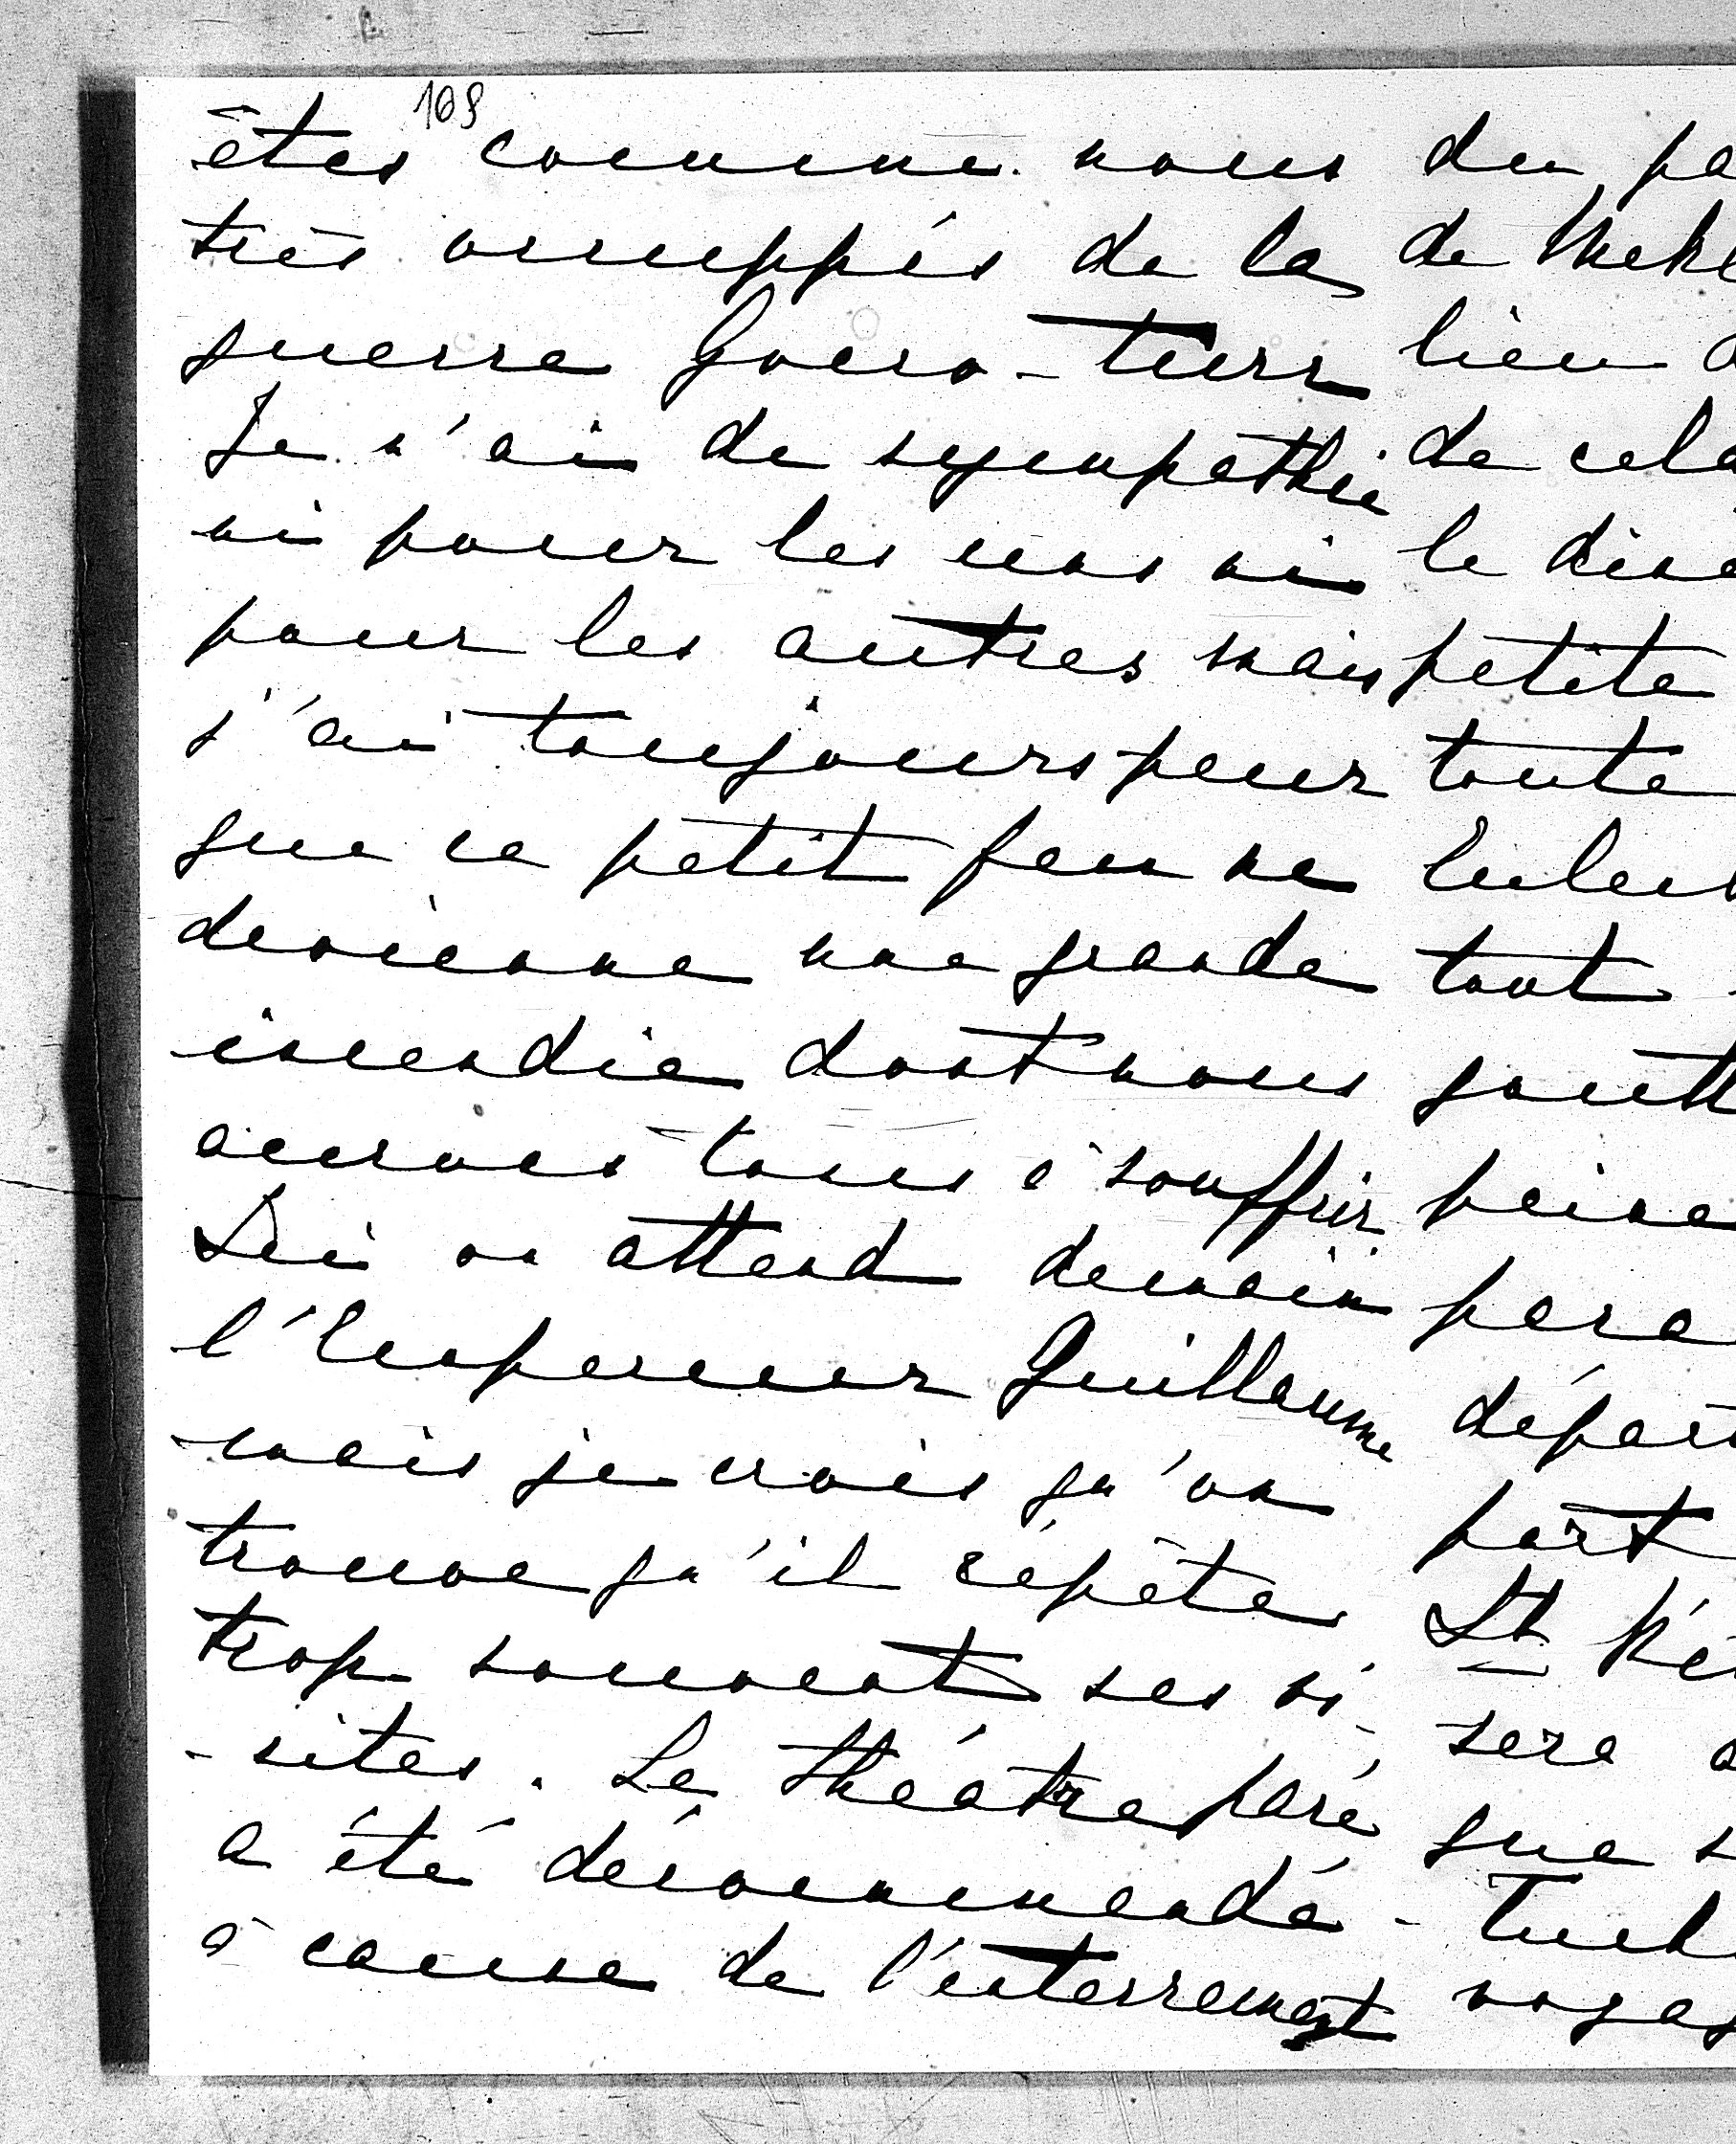 109
êtes comme nous
très occuppés de la
guerre Gréco-turr
Je n'ai de sympathie
ni pour les uns ni
pour les autres mais
j'ai toujours peur
que ce petit feu ne
devienne une grande
incendie dont nous
aurons tous à souffrir
Ici on attend demain
l'Empereur Guillaume
mais je crois qu'on
trouve qu'il répète
trop souvent ses vi-
-sites. Le théâtre paré
a été décommendé -
à cause de l'enterrement
du pa
de Mekl
lieu
de cela
le dine
petite
toute
tout
goutt
peine
para
départ
part
St Pé
sera
que
voyag